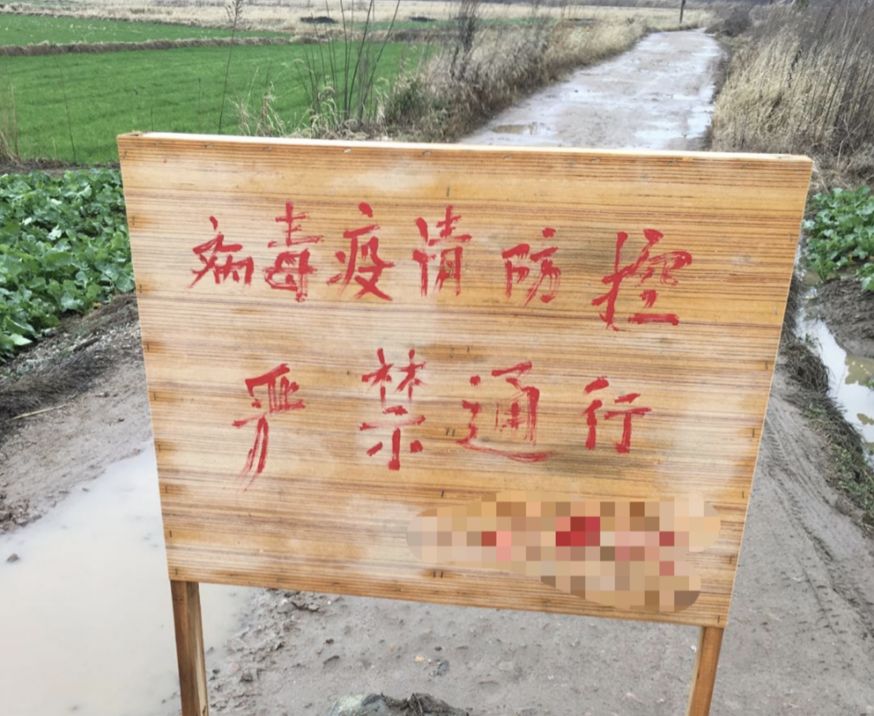 病毒疫情防控
严禁通行